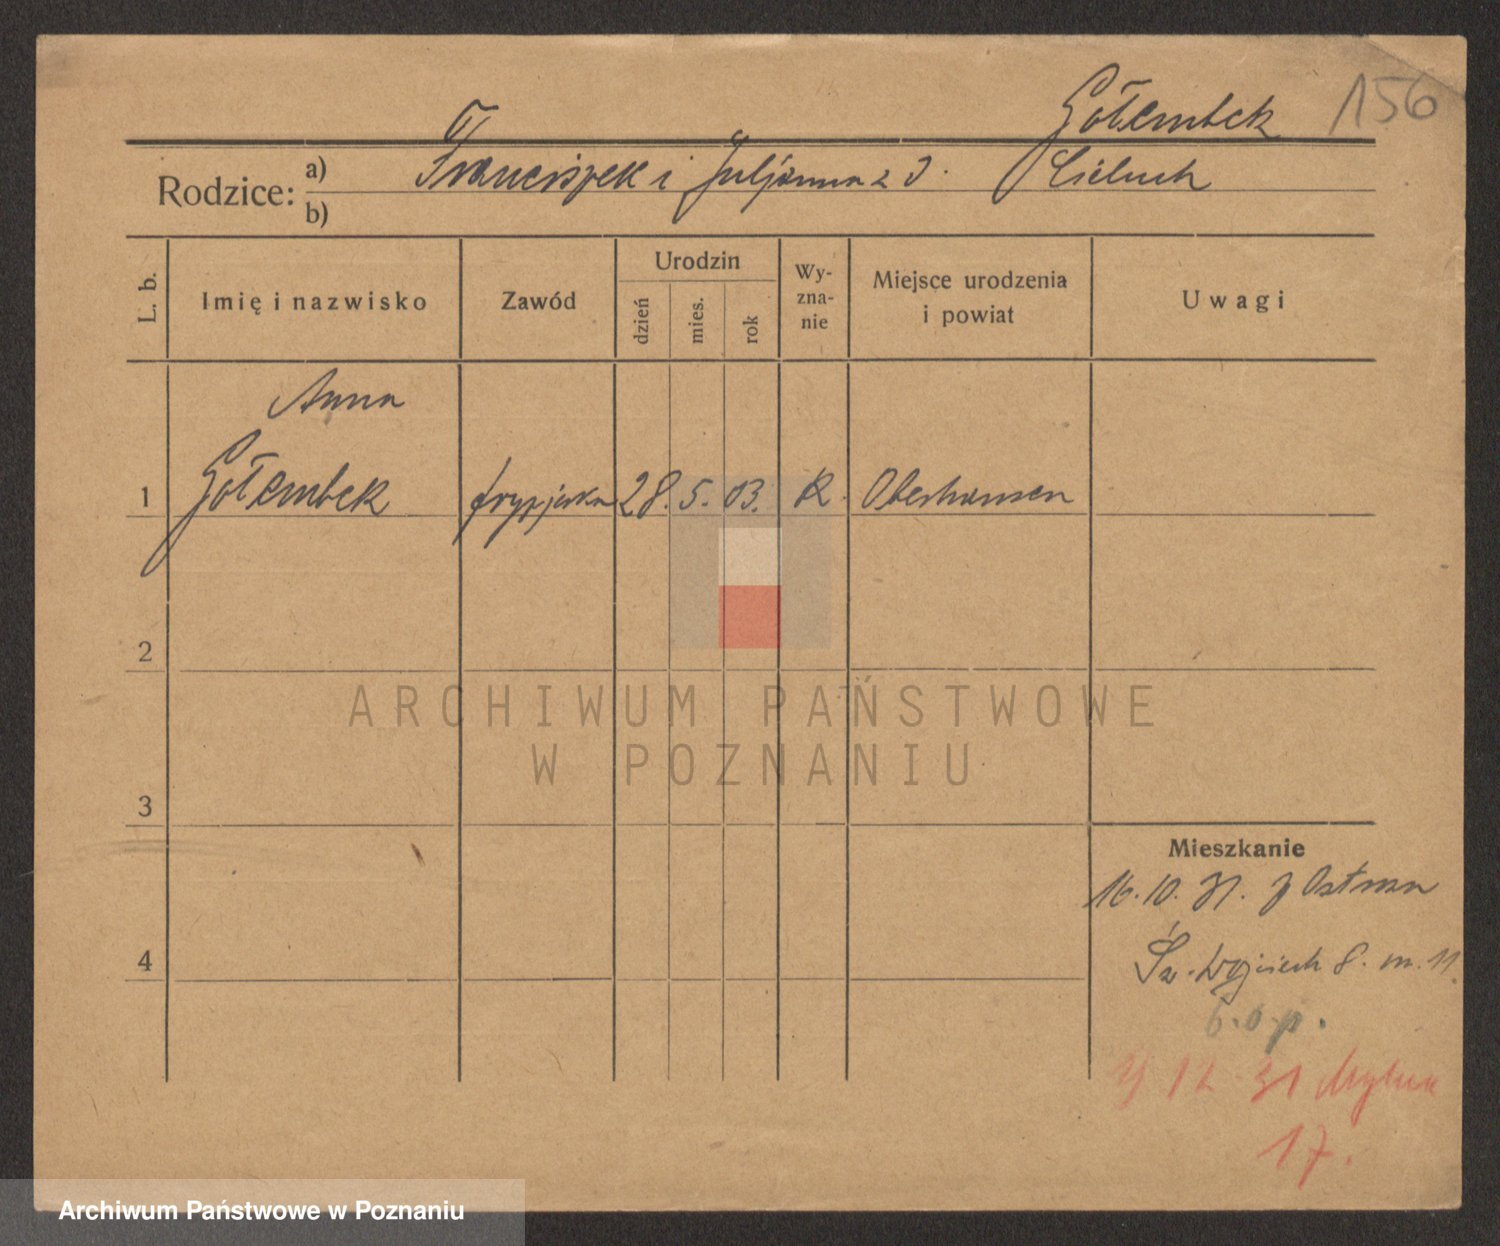 Gołembek 156
Rodzice: a) Franciszek i Juljanna z d. Cieluch
b)
L. b. Imię i nazwisko Zawód Urodzin dzień mies. rok Wy-zna-nie Miejsce urodzenia i powiat Uwagi
Anna
1 Gołembek fryzjerka 28. 5. 03. R. Oberhausen
2
ARCHIWUM PAŃSTWOWE
W POZNANIU
3
Mieszkanie
16. 10. 31. z
Św. Wojciech 8. m. 11
4
12 31
17.
Archiwum Państwowe w Poznaniu